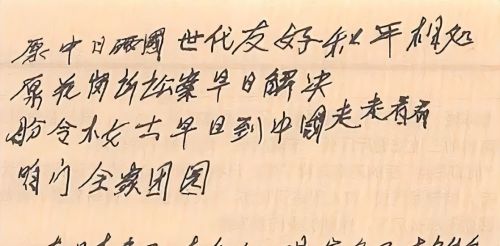 原中日两國世代友好和平相处
原花岗折讼案早日解决
盼令木女士早日到中國走走看看
咱们全家团园